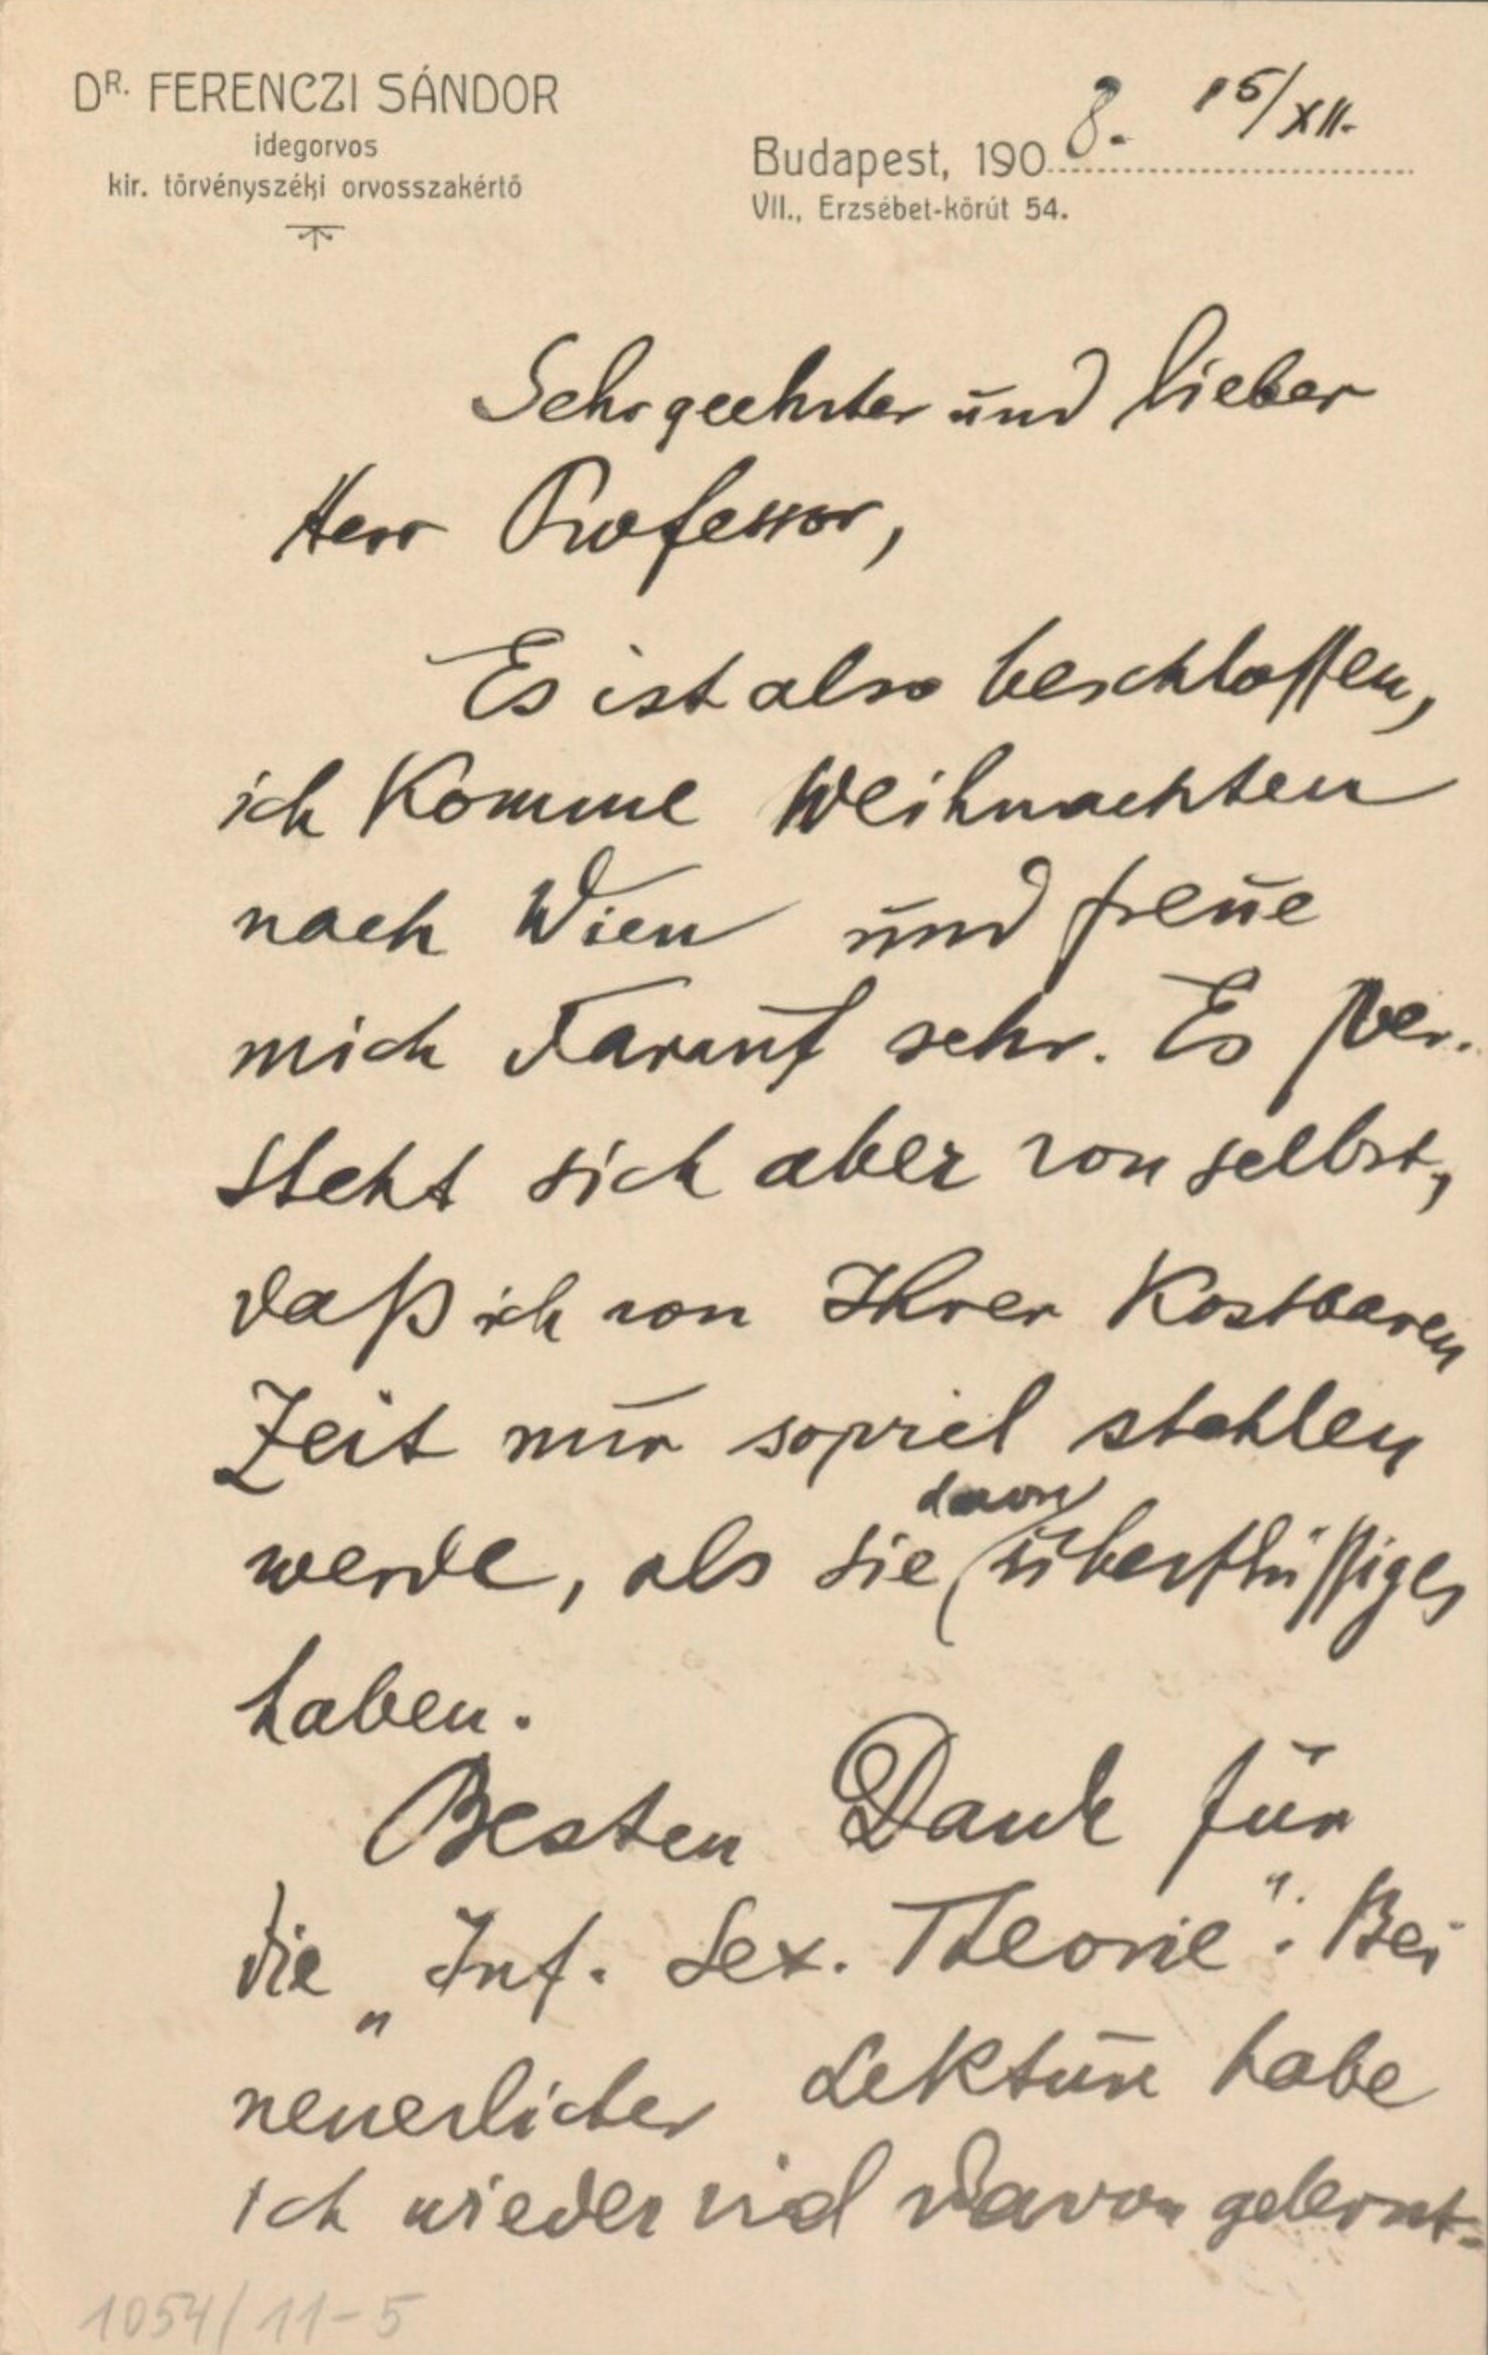 DR. FERENCZI SÁNDOR
idegorvos
kir. törvényszéki orvosszakértő
Budapest, 1908. 15/XII.
VII., Erzsébet-körút 54.
Sehr geehrter und lieber
Herr Professor,
Es ist also beschlossen,
ich komme Weihnachten
nach Wien und freue
mich darauf sehr. Es ver-
steht sich aber von selbst,
daß ich von Ihrer kostbaren
Zeit nur soviel stehlen
davon
werde, als Sie überflüssiges
haben.
Besten Dank für
die „Inf. Sex. Theorie“. Bei
neuerlicher Lektüre habe
ich wieder viel davon gelernt.
1054/11-5